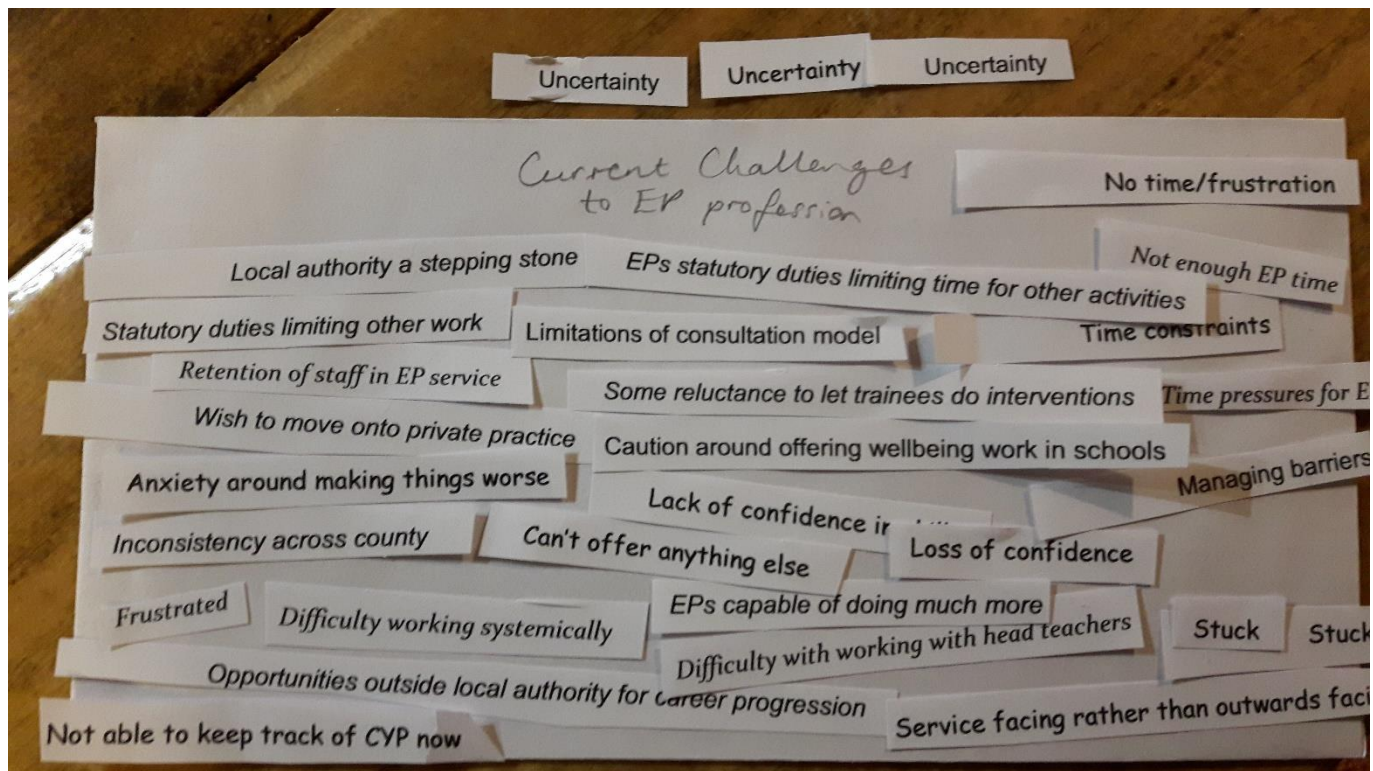 Uncertainty
Uncertainty
Uncertainty
Current Challenges
to EP profession
No time/frustration
Local authority a stepping stone
EPs statutory duties limiting time for other activities
Not enough EP time
Statutory duties limiting other work
Limitations of consultation model
Time constraints
Retention of staff in EP service
Some reluctance to let trainees do interventions
Time pressures for E
Wish to move onto private practice
Caution around offering wellbeing work in schools
Anxiety around making things worse
Lack of confidence in
Managing barriers
Inconsistency across county
Can't offer anything else
Loss of confidence
Frustrated
Difficulty working systemically
EPs capable of doing much more
Difficulty with working with head teachers
Stuck
Stuck
Opportunities outside local authority for career progression
Service facing rather than outwards faci
Not able to keep track of CYP now